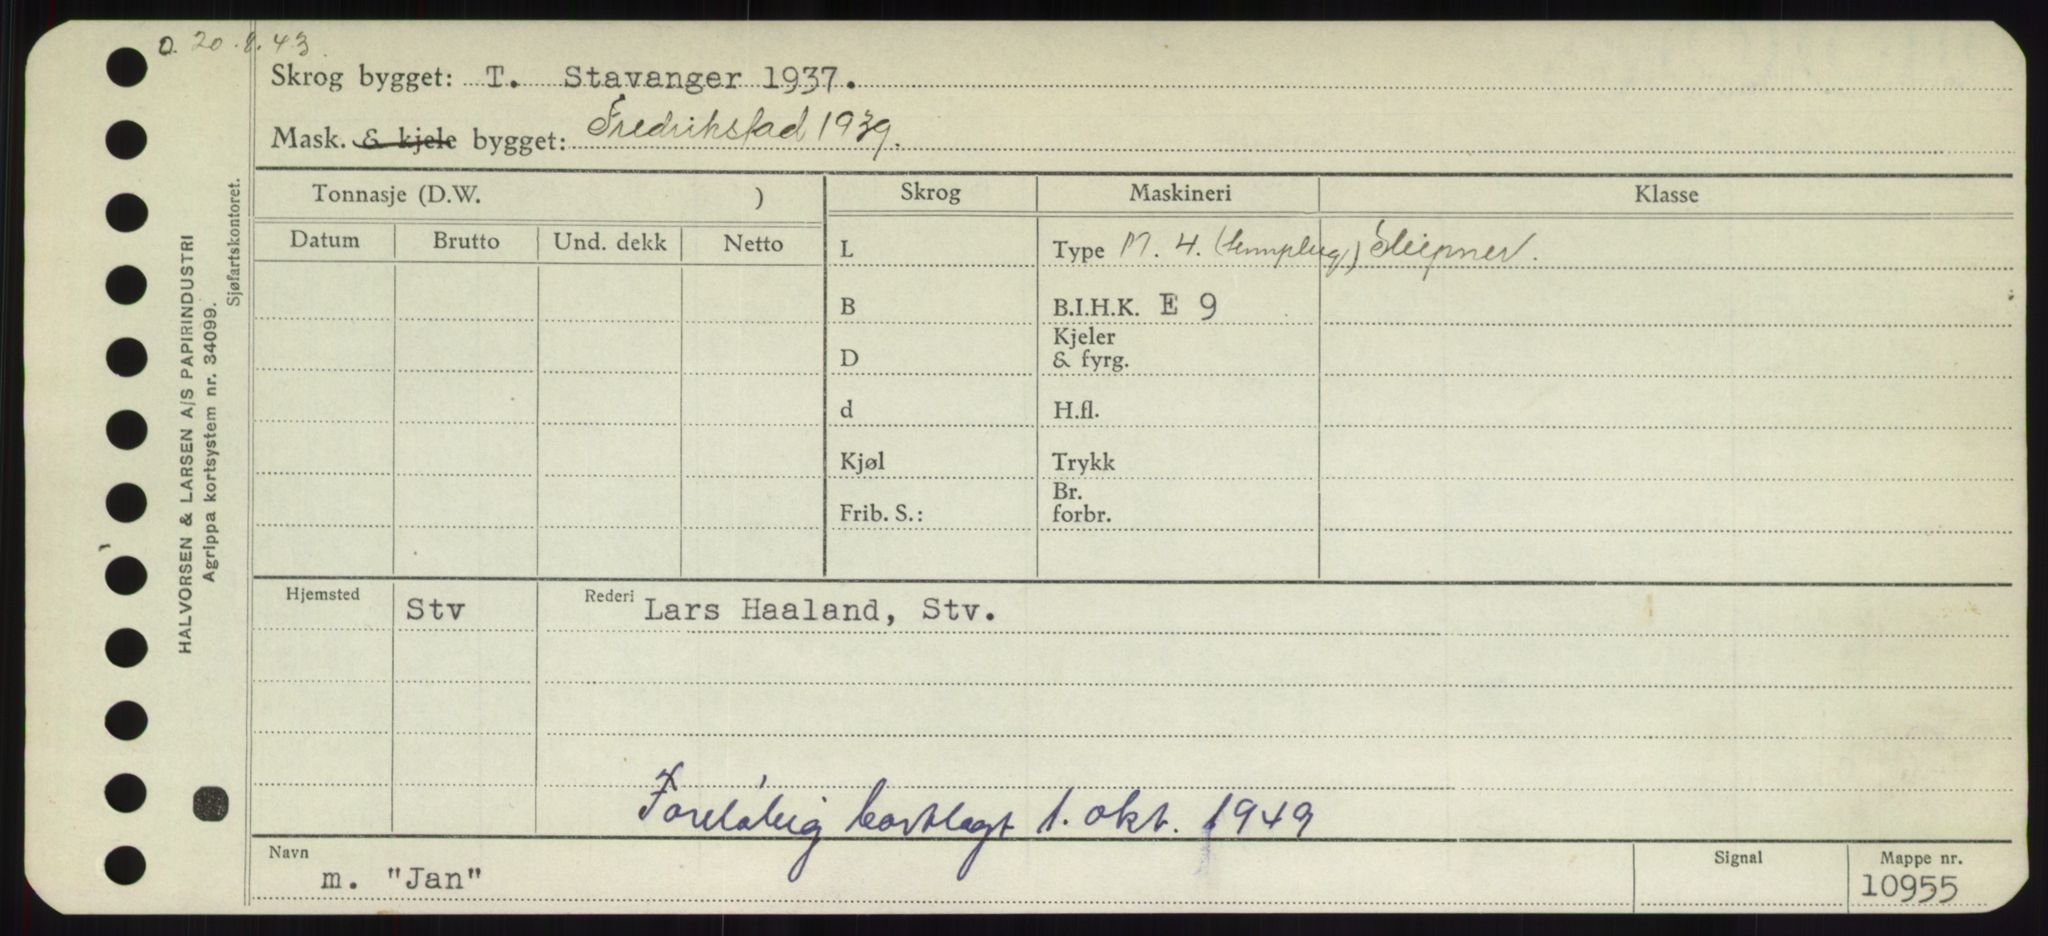 O. 20.8.43.
Skrog bygget: T. Stavanger 1937.
Mask. & kjele bygget: Fredrikstad 1939.
Tonnasje (D.W. )
Skrog
Maskineri
Klasse
Datum
Brutto
Und. dekk
Netto
L
Type M. 4. Sleipner.
B
B.I.H.K. E 9
D
Kjeler
& fyrg.
d
H.fl.
Kjøl
Trykk
Frib. S.:
Br.
forbr.
Hjemsted
Stv
Rederi Lars Haaland, Stv.
Foreløbig bortlagt 1. okt. 1949
Navn
m. "Jan"
Signal
Mappe nr.
10955
HALVORSEN & LARSEN A/S PAPIRINDUSTRI
Agrippa kortsystem nr. 34099.
Sjøfartskontoret.